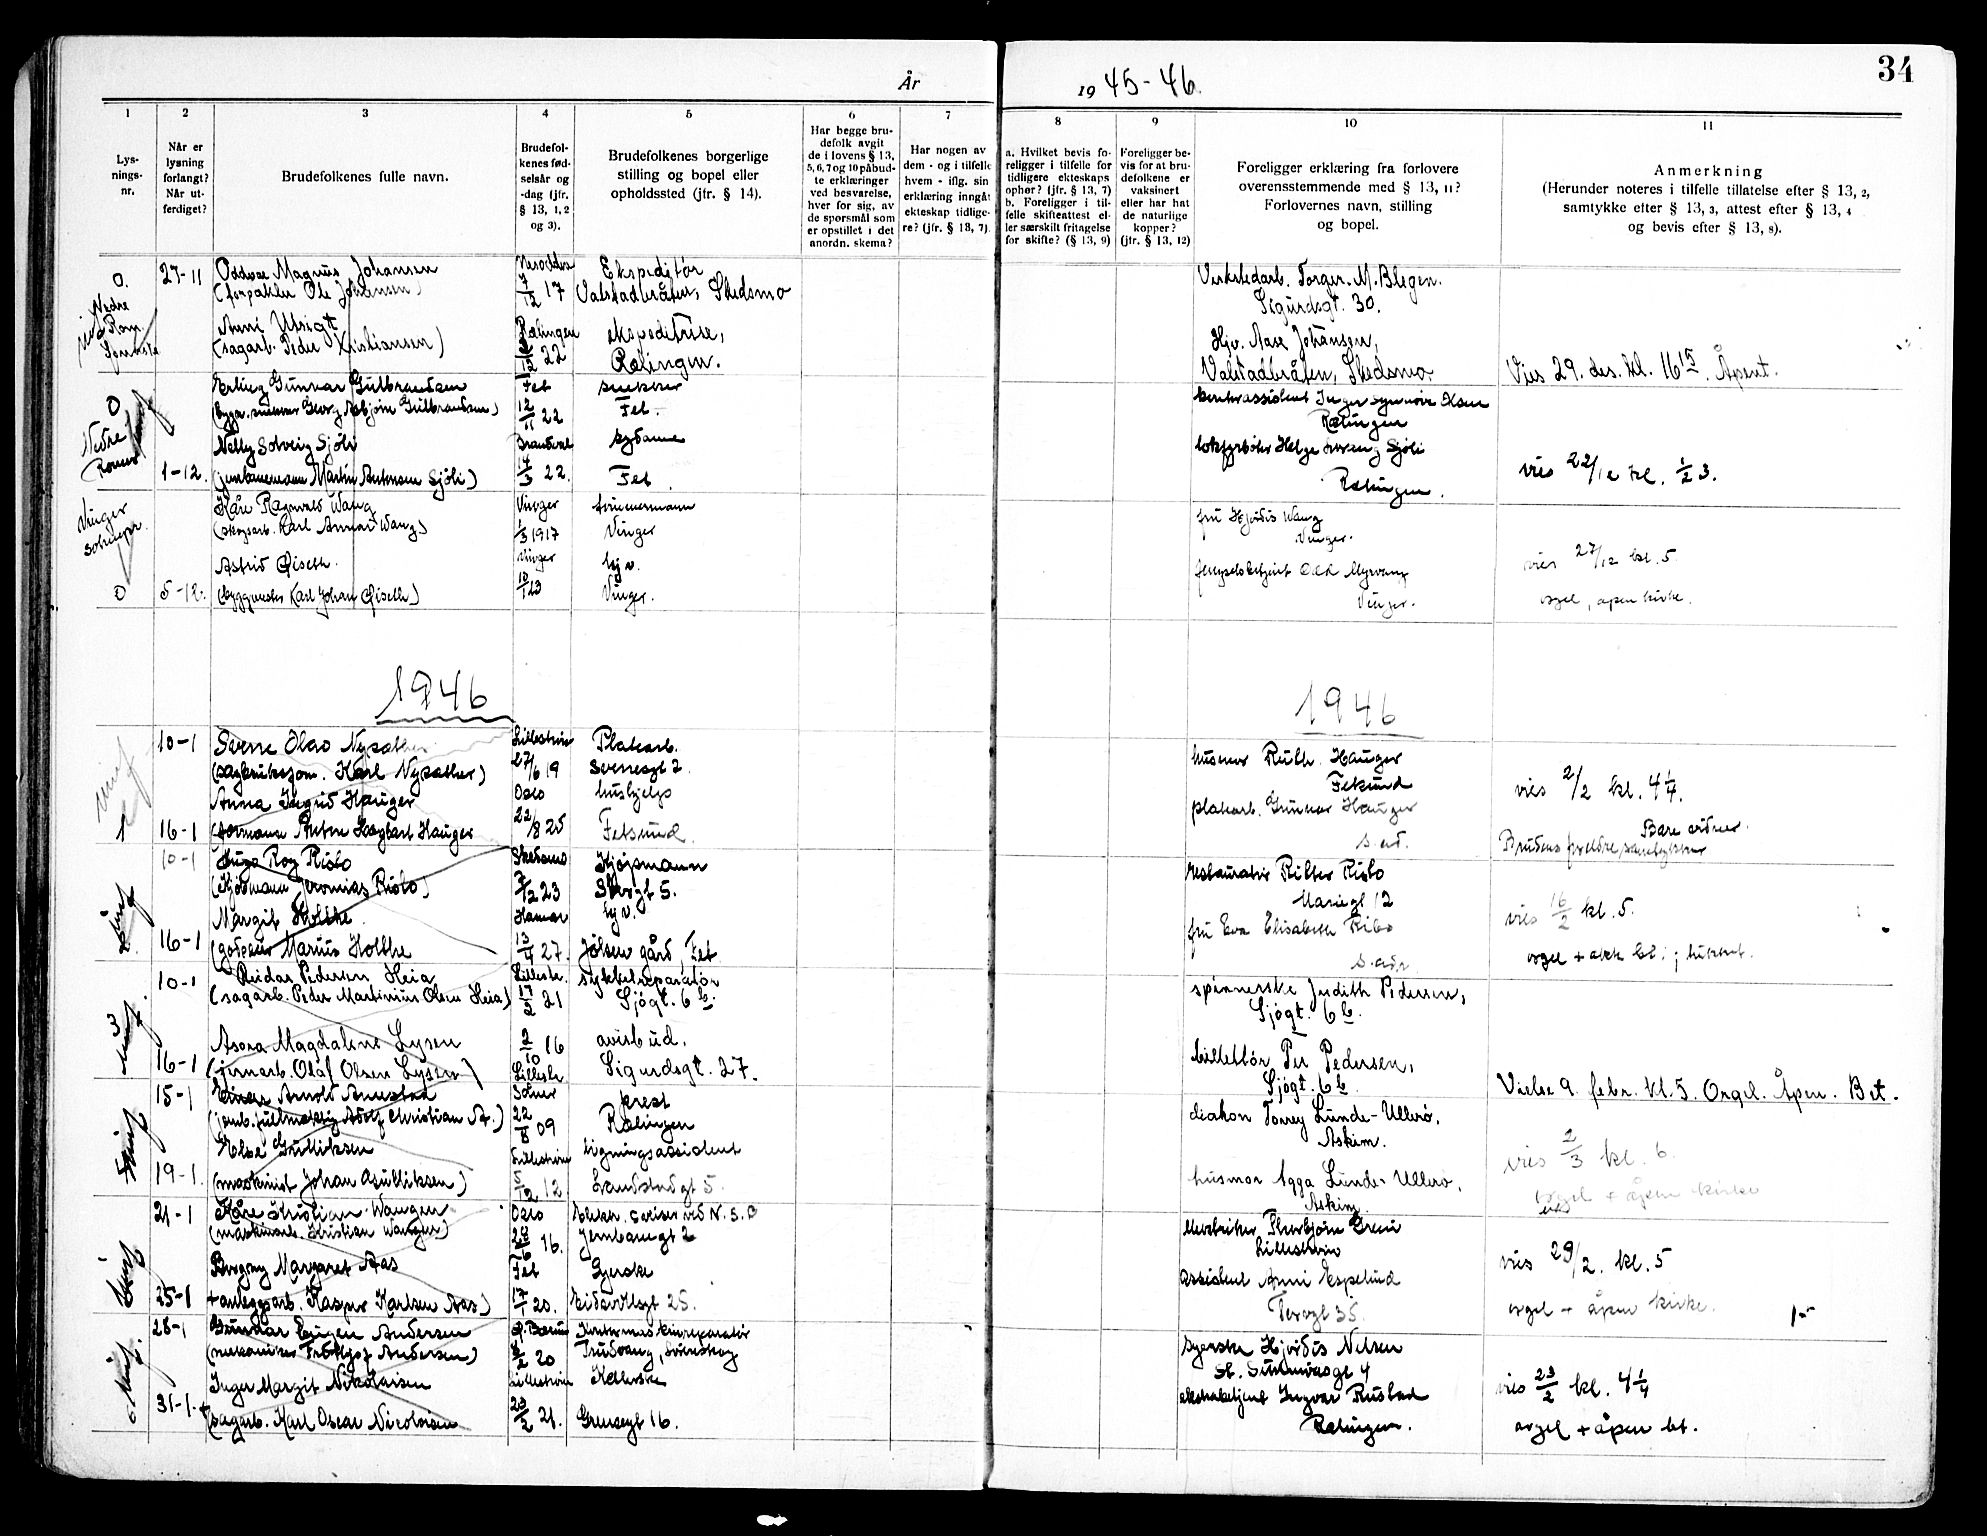 34
År
19 45-46
1
2
3
4
5
6
7
8
9
10
11
Lys-
nings-
nr.
Når er
lysning
forlangt?
Når ut-
ferdiget?
Brudefolkenes fulle navn.
Brudefol-
kenes fød-
selsår og
-dag (jfr.
§ 13, 1, 2
og 3).
Brudefolkenes borgerlige
stilling og bopel eller
opholdssted (jfr. § 14).
Har begge bru-
defolk avgit
de i lovens § 13,
5, 6, 7 og 10 påbud-
te erklæringer
ved besvarelse,
hver for sig, av
de spørsmål som
er opstillet i det
anordn. skema?
Har nogen av
dem - og i tilfelle
hvem - iflg. sin
erklæring inngåt
ekteskap tidlige-
re? (jfr. § 13, 7).
a. Hvilket bevis fo-
religger i tilfelle for
tidligere ekteskaps
ophør? (jfr. § 13, 7)
b. Foreligger i til-
felle skifteattest el-
ler særskilt fritagelse
for skifte? (§ 13, 9)
Foreligger be-
vis for at bru-
defolkene er
vaksinert
eller har hat
de naturlige
kopper?
(jfr. § 13, 12)
Foreligger erklæring fra forlovere
overensstemmende med § 13, 11?
Forlovernes navn, stilling
og bopel.
Anmerkning
(Herunder noteres i tilfelle tillatelse efter § 13, 2,
samtykke efter § 13, 3, attest efter § 13, 4
og bevis efter § 13, 8).
0. 27-11 Oddvar Magnus Johansen Nesodden Ekspeditør Verkstedarb. Torger M. Blegen.
(forpakter Ole Johansen) 7/12 17 Valstadbråten, Skedsmo Sigurdsgt. 30.
Nedre Rom.
Anni Utsigt Rælingen ekspeditrise, Hjv. Aase Johansen,
(sagarb. Peder Kristiansen) 12 22 Rælingen. Valstadbråten, Skedsmo Vies 29. des. kl. 16 15. Åpent.
0 Erling Gunnar Gulbrandsen Fet snekker kontorassistent Inger Synnøve Olsen
(bygn. snekker Georg Asbjørn Gulbrandsen) 12/11 22 Fet. Rælingen
Nedre Romer
Nelly Solveig Sjöli Brandval sydame lokfyrbøter Helge Sjöli
1-12. (jernbanemann Martin Antonsen Sjöli) 14/3 22. Fet Rælingen. vies 22/12 kl. 1/2 3.
Vinger
Kåre Ragnvald Wang Vinger tømmermann fru Hjørdis Wang
(skogsarb. Karl Wang) 1/3 1917 Vinger Vinger.
Astrid Qiseth. Vinger hjv. Myrvang vies 27/12 kl. 5
0 5-12. (byggmester Karl Johan Qiseth) 10/1 23 Vinger. Vinger. orgel, åpen kirke.
1946
1946
10-1 Sverre Olao Nysæther Lillestrøm Platearb. husmor Ruth Hauger
(sagbruksform. Karl Nysæther) 27/6 19 Sverresgt 2. Fetsund
Anna Ingrid Hauger Oslo hushjelp platearb. Gunnar Hauger vies 2/2 kl. 4 1/4.
1 16-1 (formann Anton Hagbart Hauger 22/8 25 Fetsund. s. ad. Bare ordner.
Brudens foreldre samtykker
10-1 Hugo Roy Risbo Skedsmo Kjøpmann restauratør Risbo
(Kjøpmann Jeremias Risbo) 2/12 23 5. Mariegt 12
Margit Holthe Hamar hjv. fru Eva Elisabeth Risbo vies 16/2 kl. 5.
16-1 (godseier Marius Holthe 13/4 27. Jølsen gård, Fet s. adr. orgel
10-1 Reidar Pedersen Heia Lillestr. sykkelreparatør spinnerske Judith Pedersen,
(sagarb. Peder Martinius Olsen Heia) 17/2 21 Sjøgt. 6 b. Sjøgt. 6 b.
3 Asora Magdalene Lysen 2/10 16 avisbud. billettør Per Pedersen,
16-1 (jernarb. Olaf Olsen Lysen) Lillestr. Sigurdsgt. 27. Sjøgt. 6 b. Vielse 9. febr. kl. 5. Orgel. Åpen. Bet.
15-1 Einar Arnold Solør prest diakon Torrey Lunde-Ullerø,
(jernb. fullmektig Adolf Christian A.) 22/8 09 Rælingen Askim.
Else Gulliksen Lillestrøm ligningsassistent husmor Agga Lunde-Ullerø, vies 2/3 kl. 6.
19-1. (maskinist Johan Gulliksen) 5/12 12 5. Askim. orgel + åpen kirke
21-1 Kåre Kristian Wangen Oslo elektr. ved N.S.B Thorbjørn Green
(maskinarb. Kristian Wangen) 16. Jernbanegt 2 Lillestrøm
Borgny Margaret Aas Fet Syerske assistent Anni Espelund vies 29/2. kl. 5
25-1 anleggsarb. Kasper Karlsen Aas.) 17/1 20. Eidsvollsgt 25. Torvgt 35. orgel + åpen kirke. 1-
28-1 Gunnar Eugen Andersen Ø. Bærum Kontormaskinreparatør syerske Hjørdis Nelsen
(mekaniker Fridtjof Andersen) 20 Trudvang, St. Sunnivasgt 4
Inger Margit Nikolaisen Lillestrøm Ingvar Rustad vies 23/2 kl. 4 1/4
31-1. (sagarb. Karl Oscar Nicolaisen 23/2 21. Grensegt 16. Rælingen. orgel + åpen bt.